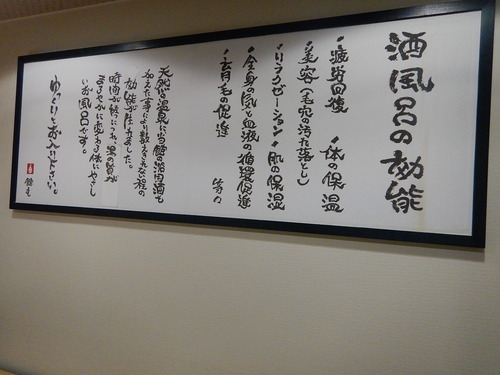 酒風呂の効能
・疲労回復 ・体の保温
・美容(毛穴の汚れ落とし)
・リラクゼーション・肌の保湿
・全身の気と血液の循環促進
・去月毛の促進 等々
天然の温泉に当館の泊田酒を
加えた事により数えきれない程の
効能が生れました。
時間が経につれ、湯の質が
まろやかに変わる体にやさし
いお風呂です。
ゆっくりとお入り下さい。
館主